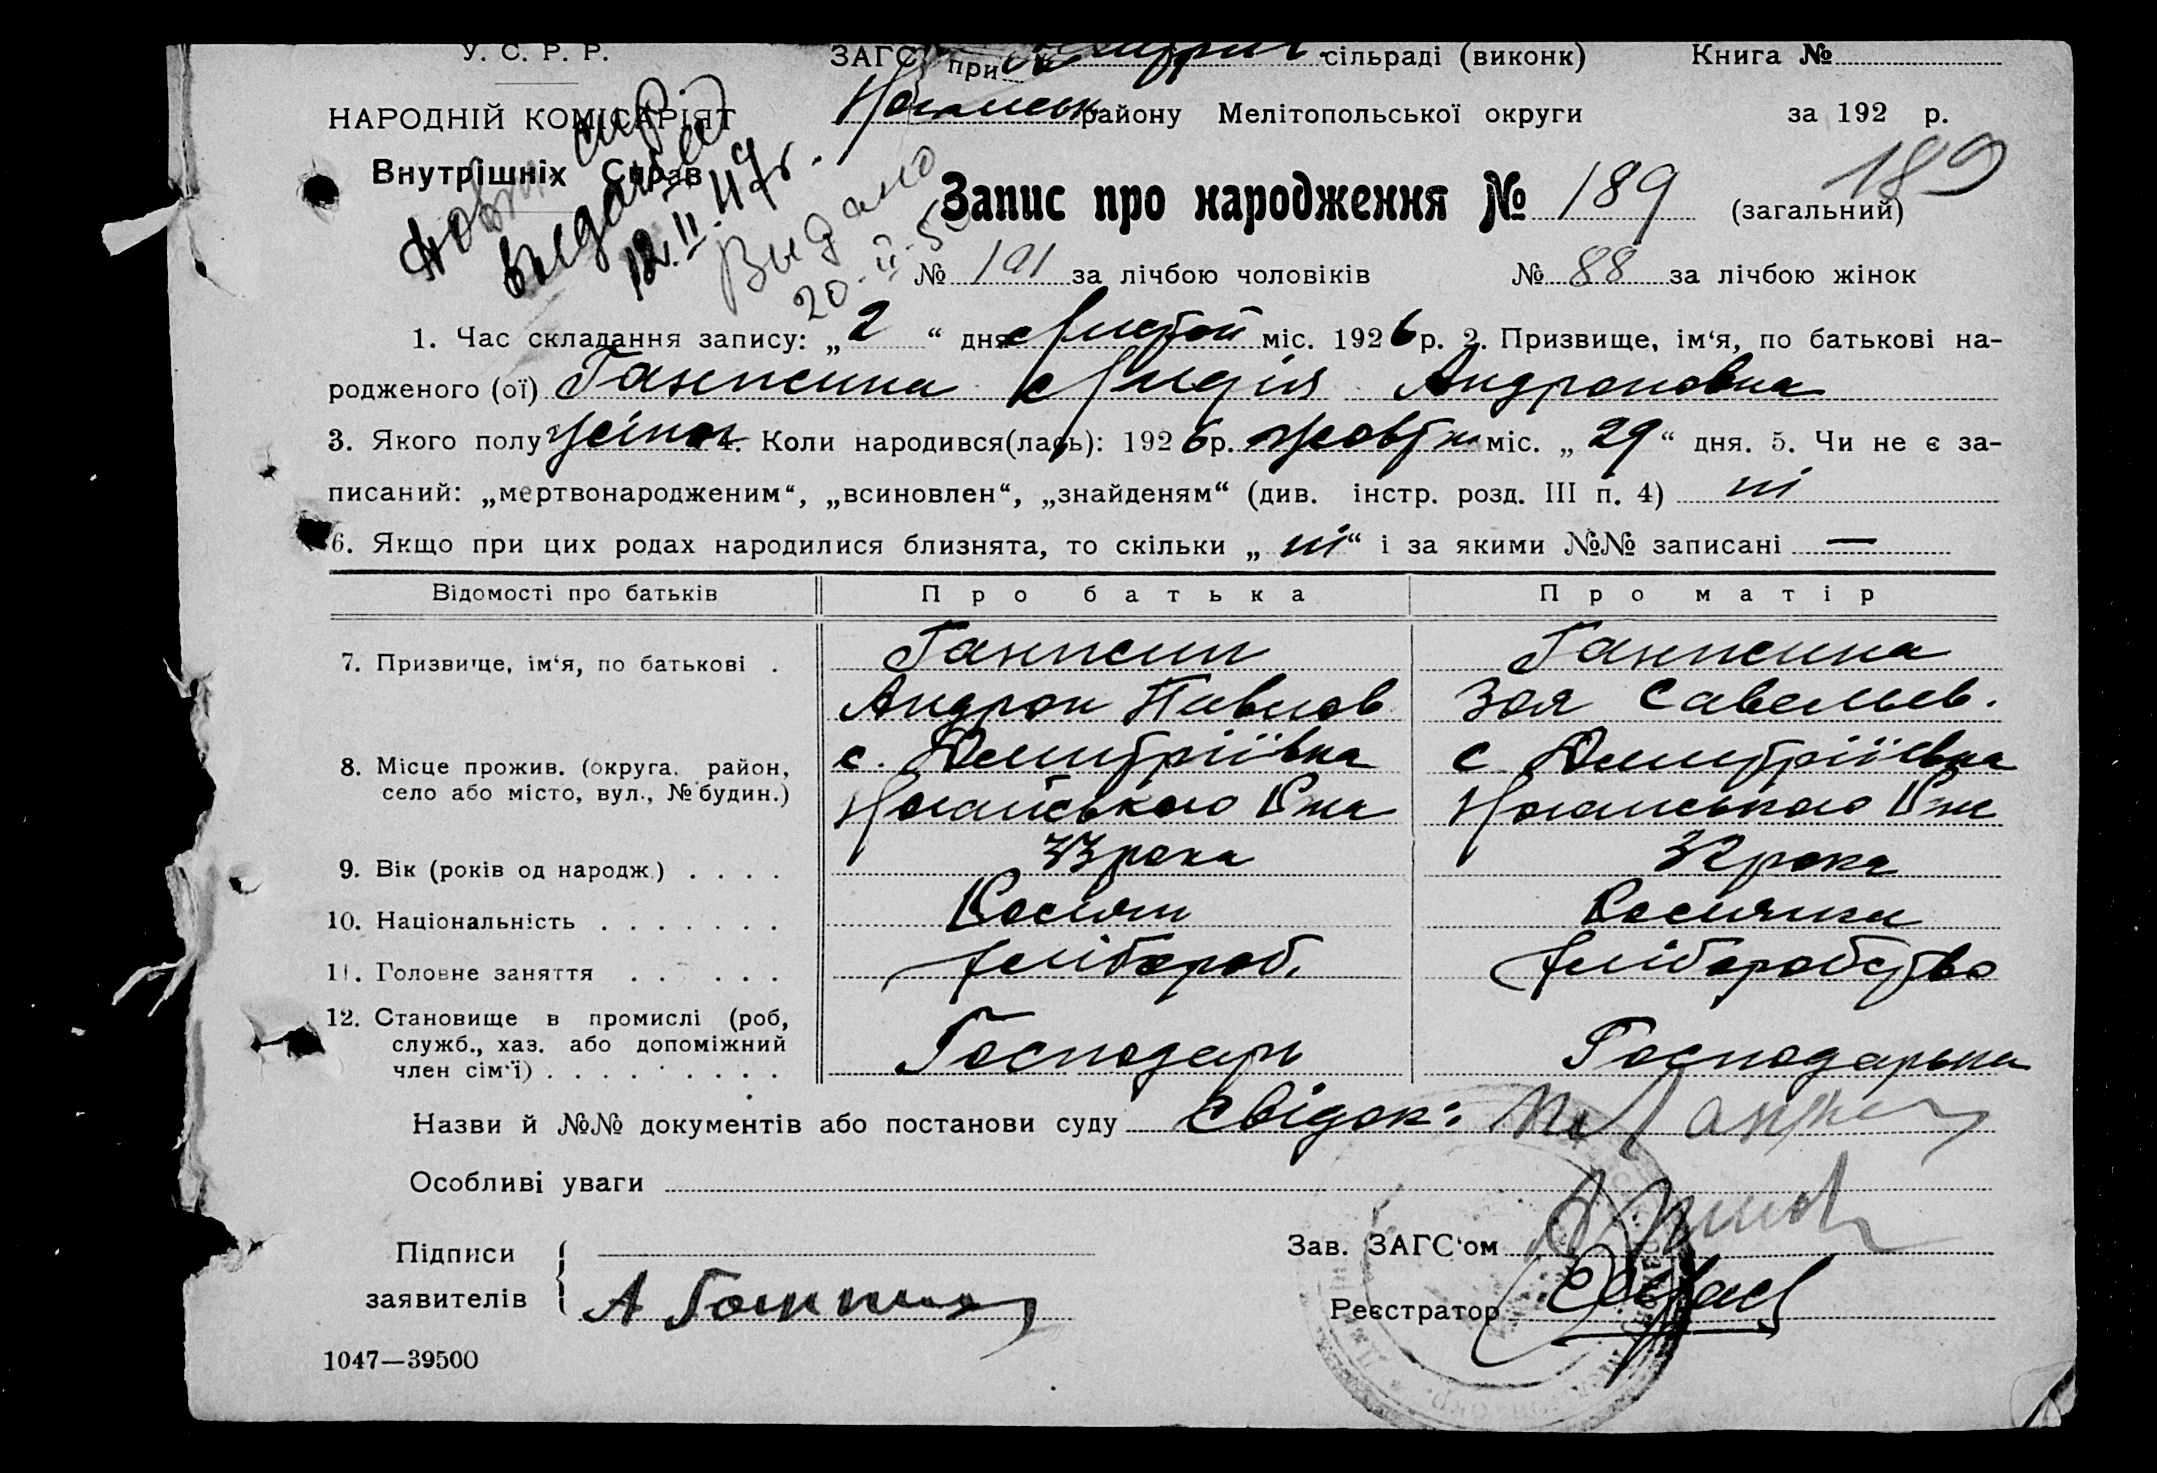 У. С. Р. Р.
НАРОДНІЙ КОМІСАРІЯТ
Внутрішніх Справ
ЗАГС при сільраді (виконк)
Ногайськ району Мелітопольської округи
Книга №
за 192 р.
выдано
12.II.47г.
Выдано
20-II-50
189
Запис про народження № 189 (загальний)
№ 101 за лічбою чоловіків № 88 за лічбою жінок
1. Час складання запису: „2“ дня Листоп міс. 1926 р. 2. Призвище, ім‘я, по батькові на-
родженого (ої) Ганжина Лидія Андроновна
3. Якого полу жіноч 4. Коли народився(лась): 1926 р. жовтн міс. „29“ дня. 5. Чи не є за-
писаний: „мертвонародженим“, „всиновлен“, „знайденям“ (див. інстр. розд. III п. 4) ні
6. Якщо при цих родах народилися близнята, то скільки „ні“ і за якими №№ записані —
Відомості про батьків Про батька Про матір
7. Призвище, ім‘я, по батькові . Ганжин Ганжина
Андрон Павлов Зоя Савельев.
8. Місце прожив. (округа. район,
село або місто, вул., № будин.)
с. Дмитріївна с Дмитріївна
Ногайського Р-на Ногайського Р-на
9. Вік (років од народж.) . . . . 33 рока 32 рока
10. Національність . . . . . . . Росіян Росіянка
11. Головне заняття . . . . . . хлібороб. хліборобство
12. Становище в промислі (роб,
служб., хаз. або допоміжний
член сім‘ї) . . . . . . . . . Господарь Господарька
Назви й №№ документів або постанови суду Свідок:
Особливі уваги
Підписи
заявителів
А Ганжин
Зав. ЗАГС‘ом
Реєстратор
1047—39500